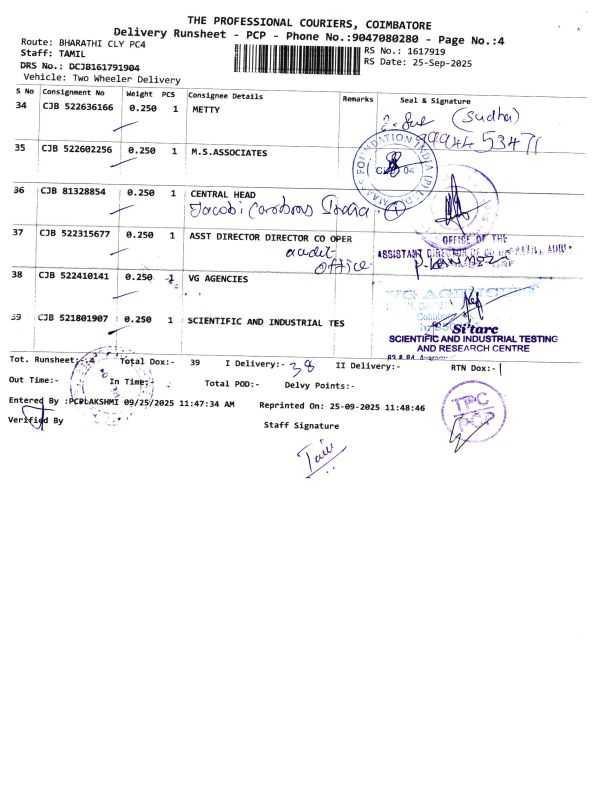 THE PROFESSIONAL COURIERS, COIMBATORE
Delivery Runsheet - PCP - Phone No.:9047080280 - Page No.:4
Route: BHARATHI CLY PC4
RS No.: 1617919
Staff: TAMIL
RS Date: 25-Sep-2025
DRS No.: DCJB161791904
Vehicle: Two Wheeler Delivery
S No Consignment No Weight PCS Consignee Details Remarks Seal & Signature
34 CJB 522636166 0.250 1 METTY
(Sudha)
35 CJB 522602256 0.250 1 M.S.ASSOCIATES
FOUNDATION INDIA (P)
36 CJB 81328854 0.250 1 CENTRAL HEAD
Jacobi Carbons India
37 CJB 522315677 0.250 1 ASST DIRECTOR DIRECTOR CO OPER
audit
office
OFFICE OF THE
ASSISTANT DIRECTOR OF
38 CJB 522410141 0.250 1 VG AGENCIES
VG AGENCIES
39 CJB 521801907 0.250 1 SCIENTIFIC AND INDUSTRIAL TES
Si'tarc
SCIENTIFIC AND INDUSTRIAL TESTING
AND RESEARCH CENTRE
83 & 84
Tot. Runsheet:- 4 Total Dox:- 39 I Delivery:- 38 II Delivery:- RTN Dox:- 1
Out Time:- In Time:- Total POD:- Delvy Points:-
Entered By :PCPLAKSHMI 09/25/2025 11:47:34 AM Reprinted On: 25-09-2025 11:48:46
TPC
PCP
Verified By
Staff Signature